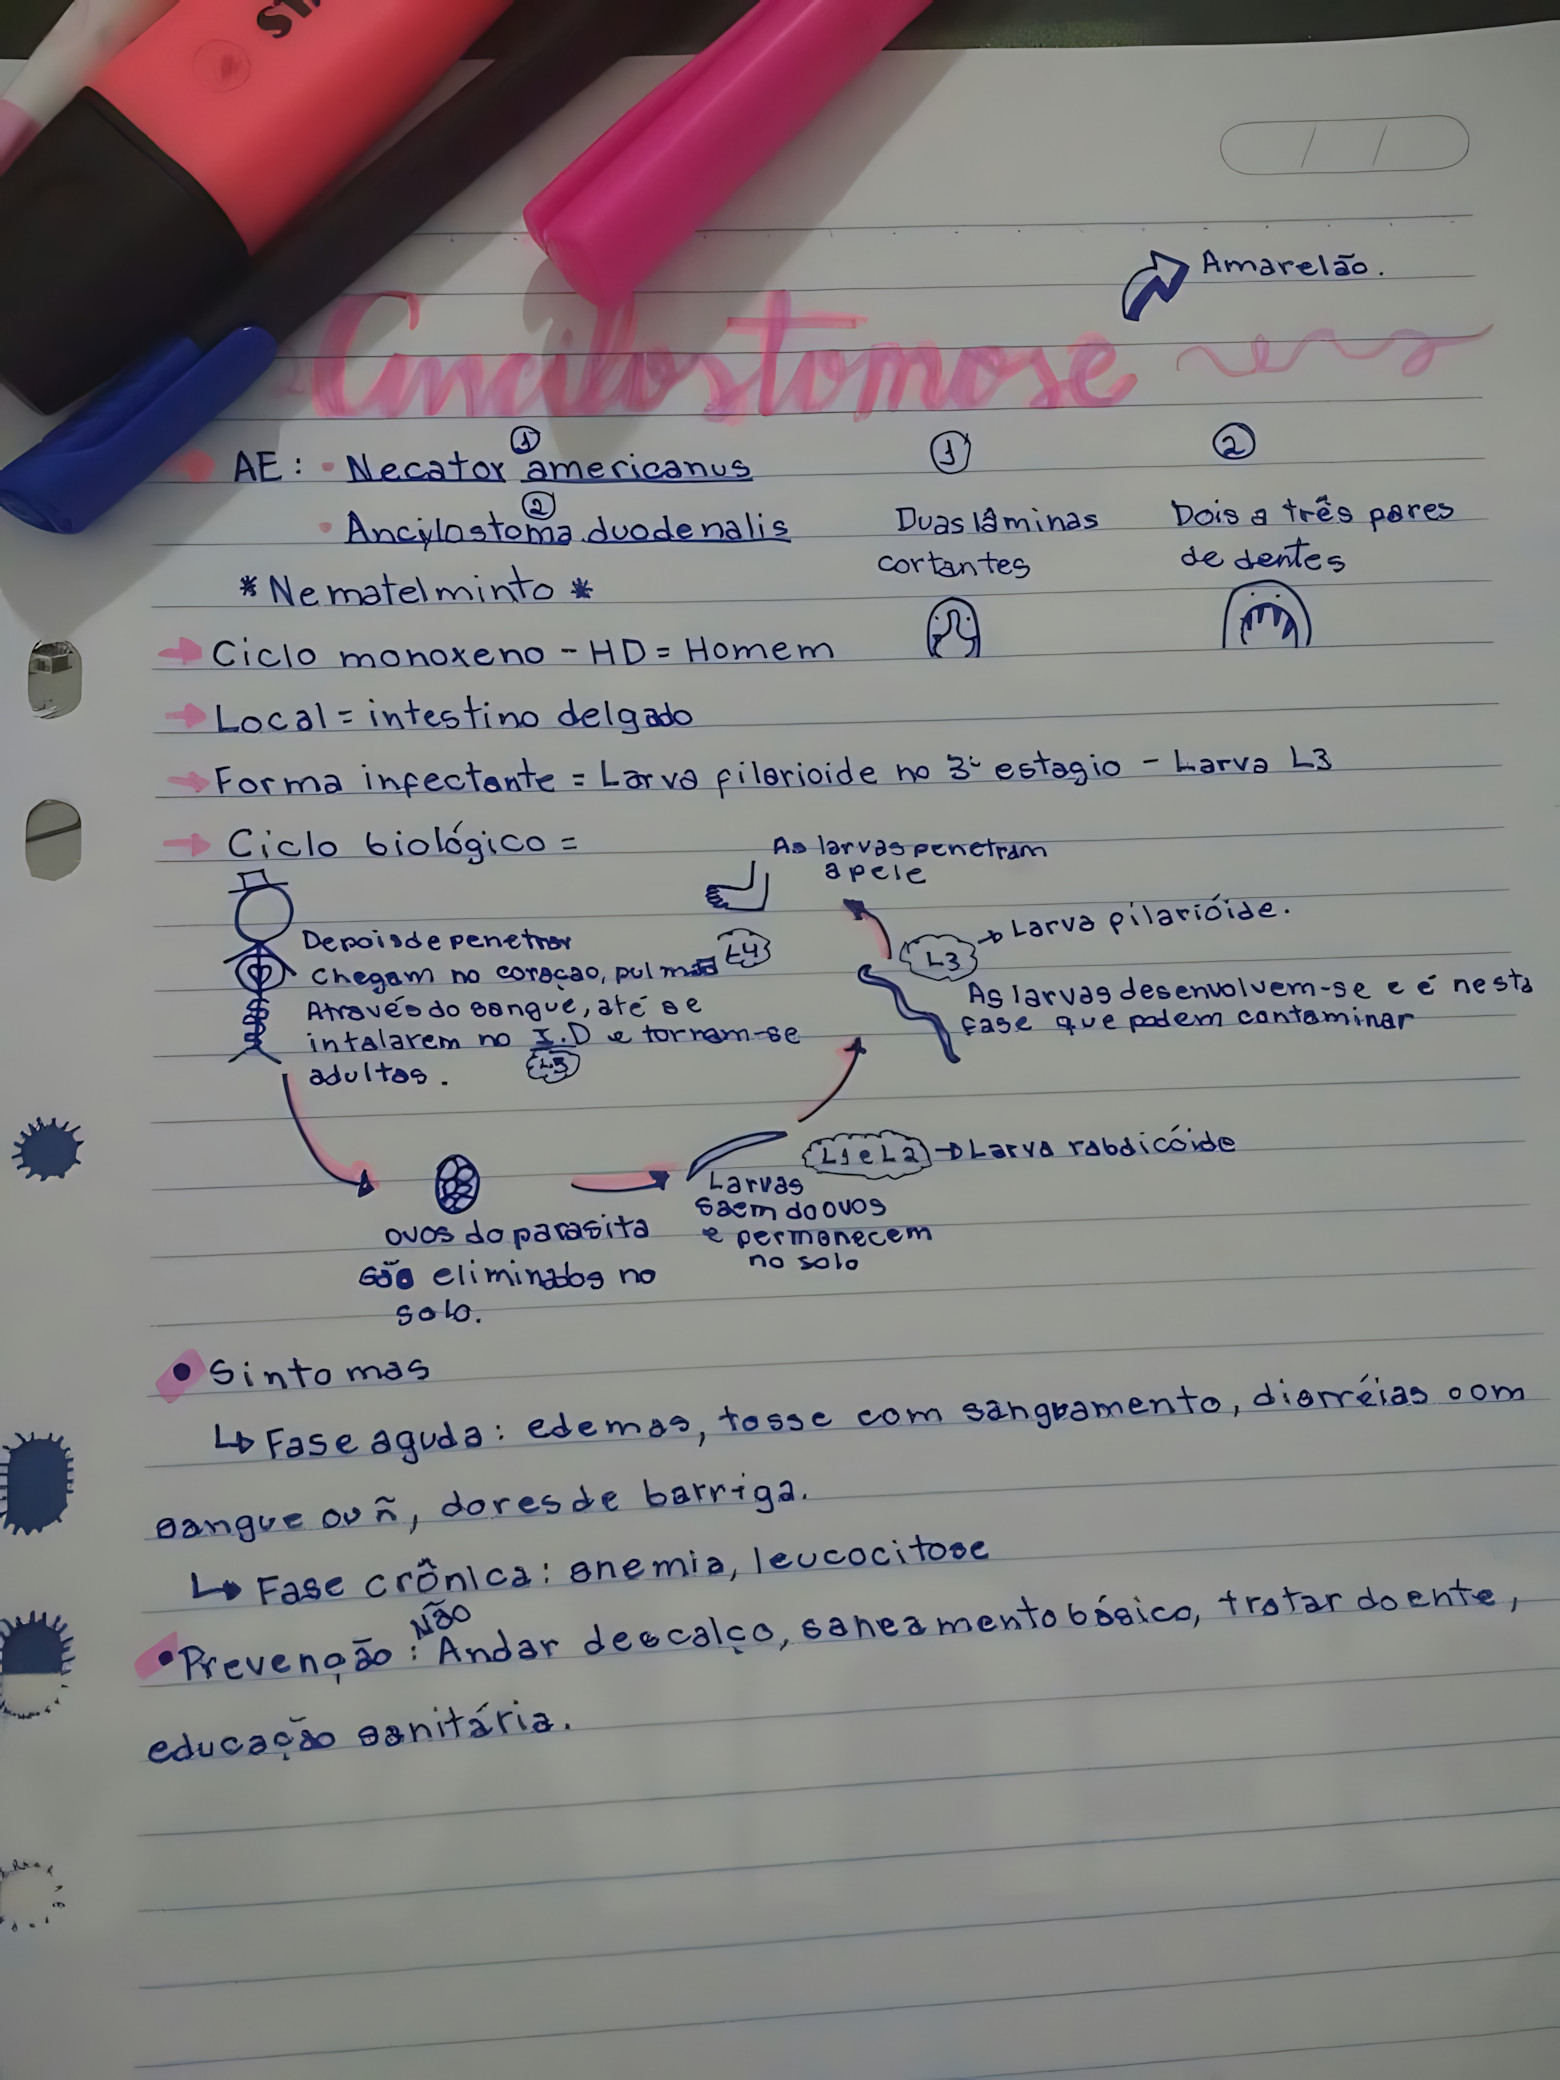 STA
Amarelão.
Ancilostomose
① ① ②
AE: • Necator americanus
②
• Ancilostoma duodenalis
Duas lâminas
cortantes
Dois a três pares
de dentes
* Nematelminto *
→ Ciclo monoxeno - HD = Homem
→ Local = intestino delgado
→ Forma infectante = Larva filarioide no 3º estagio - Larva L3
→ Ciclo biológico =
As larvas penetram
a pele
L3 → Larva filarióide.
As larvas desenvolvem-se e é nesta
fase que podem contaminar
Depois de penetrar
chegam no coração, pulmão L4
Através do sangue, até se
intalarem no I.D e tornam-se
L5
adultos.
L1 e L2 → Larva rabdicóide
Larvas
saem do ovos
e permanecem
no solo
ovos do parasita
são eliminados no
solo.
• Sintomas
↳ Fase aguda: edemas, tosse com sangramento, diarréias com
sangue ou ñ, dores de barriga.
↳ Fase crônica: anemia, leucocitose
NÃO
• Prevenção: Andar descalço, saneamento básico, tratar doente,
educação sanitária.